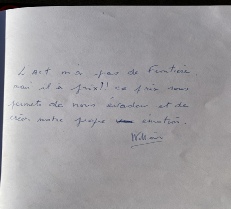 L'Art n'a pas de frontière
mais il a prix?! ce prix nous
permets de nous évader et de
créer notre propre émotion.
William